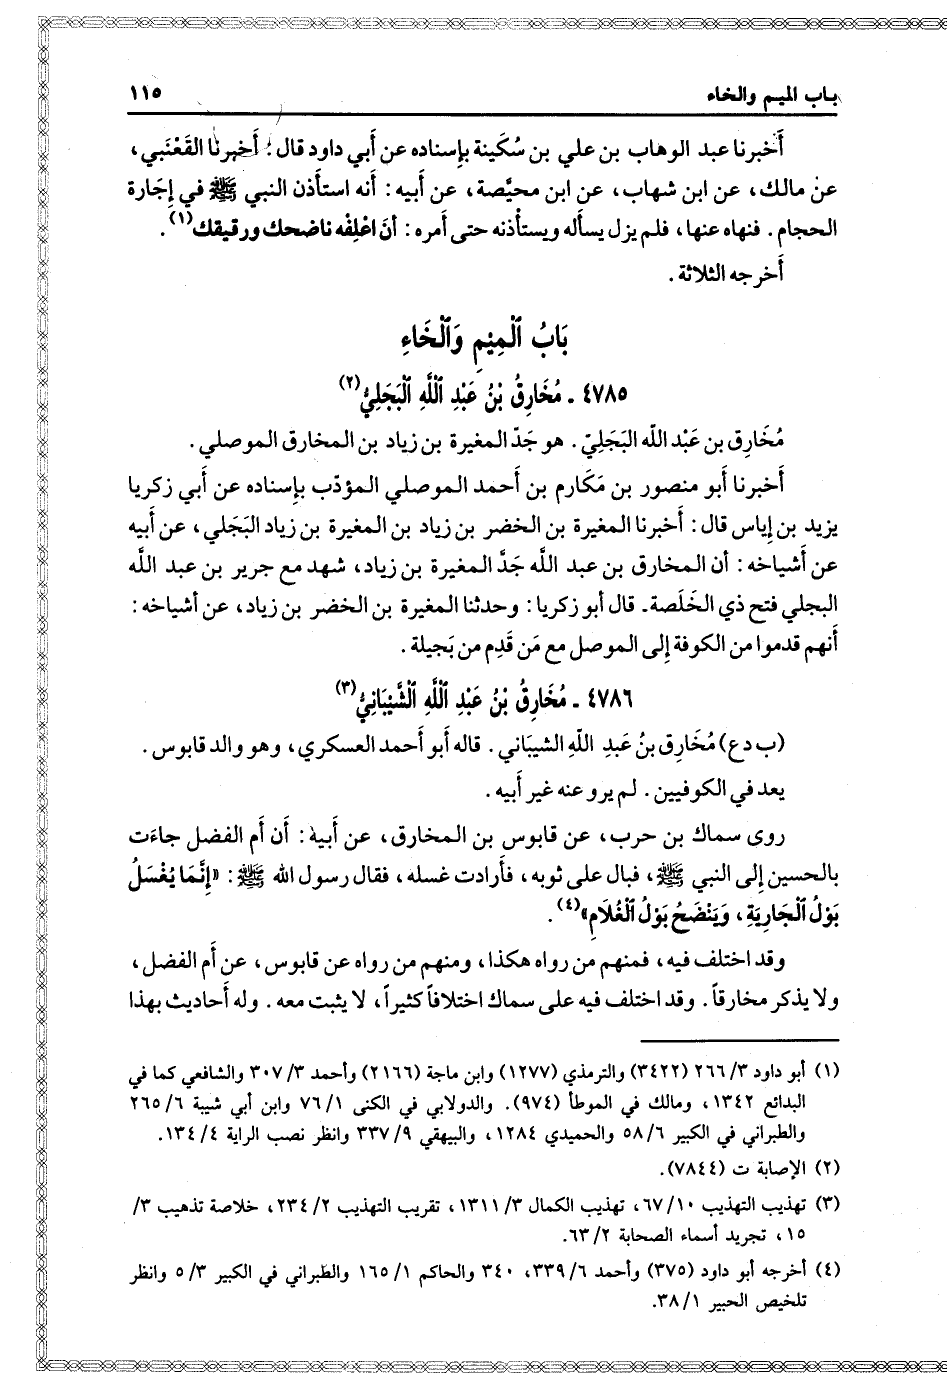 باب الميم والخاء ١١٥
أَخبرنا عبد الوهاب بن علي بن سُكَينة بإِسناده عن أَبي داود قال: أَخبرنا القَعْنَبي،
عن مالك، عن ابن شهاب، عن ابن محيَّصة، عن أَبيه: أَنه استأذن النبي ﷺ في إِجَارة
الحجام. فنهاه عنها، فلم يزل يسأَله ويستأْذنه حتى أَمره: أن اعْلِفْه ناضحك ورقيقك(١).
أَخرجه الثلاثة.
بَابُ الْمِيْمِ وَالْخَاءِ
٤٧٨٥ ـ مُخَارِقُ بْنُ عَبْدِ اللَّهِ الْبَجَلِيُّ(٢)
مُخَارِق بن عَبْد اللّه البَجَلِيّ. هو جَدّ المغيرة بن زياد بن المخارق الموصلي.
أَخبرنا أَبو منصور بن مَكَارم بن أَحمد الموصلي المؤدّب بإِسناده عن أَبي زكريا
يزيد بن إِياس قال: أَخبرنا المغيرة بن الخضر بن زياد بن المغيرة بن زياد البَجَلي، عن أَبيه
عن أَشياخه: أَن المخارق بن عبد اللَّه جَدَّ المغيرة بن زياد، شهد مع جرير بن عبد اللَّه
البجلي فتح ذي الخَلَصة. قال أَبو زكريا: وحدثنا المغيرة بن الخضر بن زياد، عن أشياخه:
أَنهم قدموا من الكوفة إِلى الموصل مع مَن قَدِم من بَجيلة.
٤٧٨٦ ـ مُخَارِقُ بْنُ عَبْدِ اللَّهِ الْشَّيْبَانِيُّ(٣)
(ب د ع) مُخَارِق بنُ عَبدِ اللّهِ الشيبَاني. قاله أَبو أَحمد العسكري، وهو والد قابوس.
يعد في الكوفيين. لم يرو عنه غير أَبيه.
روى سماك بن حرب، عن قابوس بن المخارق، عن أَبية: أَن أُم الفضل جاءَت
بالحسين إِلى النبي ﷺ، فبال على ثوبه، فأَرادت غسله، فقال رسول الله ﷺ: «إِنَّمَا يُغْسَلُ
بَوْلُ الْجَارِيَةِ، وَيَنْضَحُ بَوْلُ الْغُلَامِ»(٤).
وقد اختلف فيه، فمنهم من رواه هكذا، ومنهم من رواه عن قابوس، عن أُم الفضل،
ولا يذكر مخارقاً. وقد اختلف فيه على سماك اختلافاً كثيراً، لا يثبت معه. وله أَحاديث بهذا
(١) أبو داود ٣/ ٢٦٦ (٣٤٢٢) والترمذي (١٢٧٧) وابن ماجة (٢١٦٦) وأحمد ٣/ ٣٠٧ والشافعي كما في
البدائع ١٣٤٢، ومالك في الموطأ (٩٧٤). والدولابي في الكنى ١/ ٧٦ وابن أبي شيبة ٦/ ٢٦٥
والطبراني في الكبير ٦/ ٥٨ والحميدي ١٢٨٤، والبيهقي ٩/ ٣٣٧ وانظر نصب الراية ٤/ ١٣٤.
(٢) الإصابة ت (٧٨٤٤).
(٣) تهذيب التهذيب ١٠/ ٦٧، تهذيب الكمال ٣/ ١٣١١، تقريب التهذيب ٢/ ٢٣٤، خلاصة تذهيب ٣/
١٥، تجريد أسماء الصحابة ٢/ ٦٣.
(٤) أخرجه أبو داود (٣٧٥) وأحمد ٦/ ٣٣٩، ٣٤٠ والحاكم ١/ ١٦٥ والطبراني في الكبير ٣/ ٥ وانظر
تلخيص الحبير ١/ ٣٨.